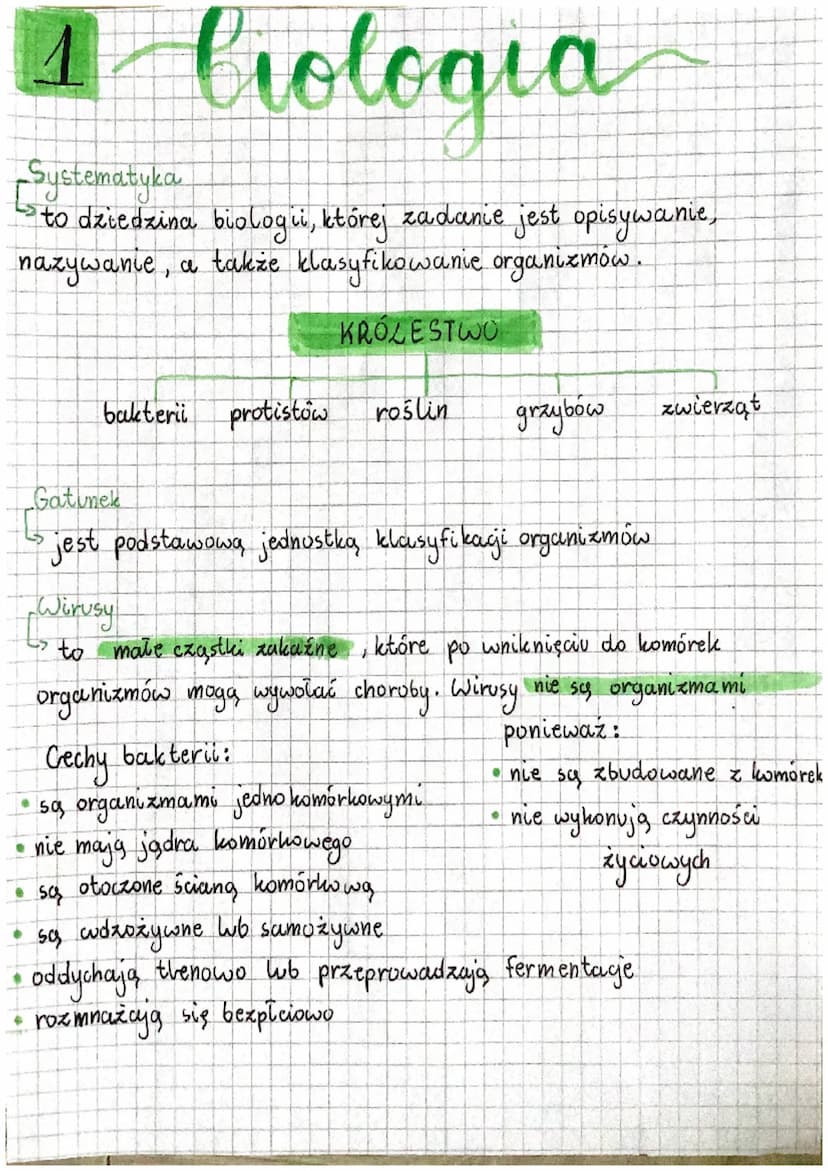 1 biologia
Systematyka
to dziedzina biologii, której zadanie jest opisywanie,
nazywanie, a także klasyfikowanie organizmów.
KRÓLESTWO
bakterii protistów roślin grzybów zwierząt
Gatunek
jest podstawową jednostką klasyfikacji organizmów
Wirusy
to małe cząstki zakaźne, które po wniknięciu do komórek
organizmów mogą wywołać choroby. Wirusy nie są organizmami
ponieważ:
• nie są zbudowane z komórek
• nie wykonują czynności
życiowych
Cechy bakterii:
• są organizmami jednokomórkowymi
• nie mają jądra komórkowego
• są otoczone ścianą komórkową
• są cudzożywne lub samożywne
• oddychają tlenowo lub przeprowadzają fermentacje
• rozmnażają się bezpłciowo